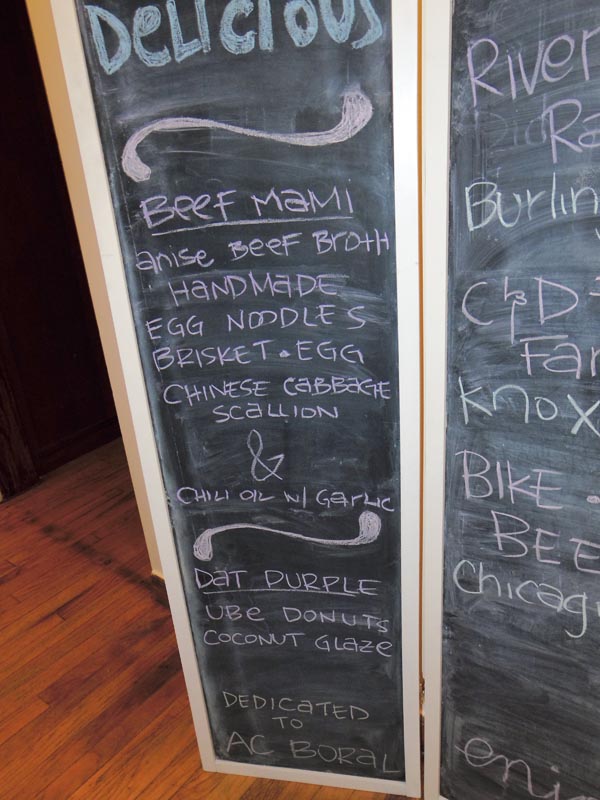 Delicious
BEEF MAMI
anise BEEF BROTH
HANDMADE
EGG NOODLES
BRISKET . EGG
CHINESE CABBAGE
SCALLION
&
CHILI OIL W/ GARLIC
DAT PURPLE
UBE DONUTS
COCONUT GLAZE
DEDICATED
TO
AC BORAL
River
Ra
Burlin
C&D
Far
Knox
BIKE .
BEE
Chicag
enj